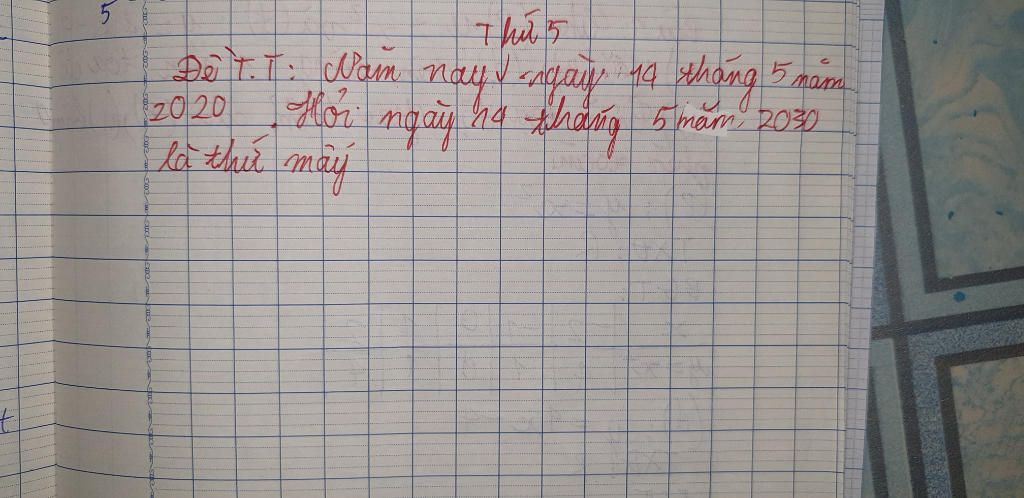 5
Thứ 5
Đề T.T: Năm nay √ ngày 14 tháng 5 năm
2020 . Hỏi ngày 14 tháng 5 năm, 2030
là thứ mấy
t